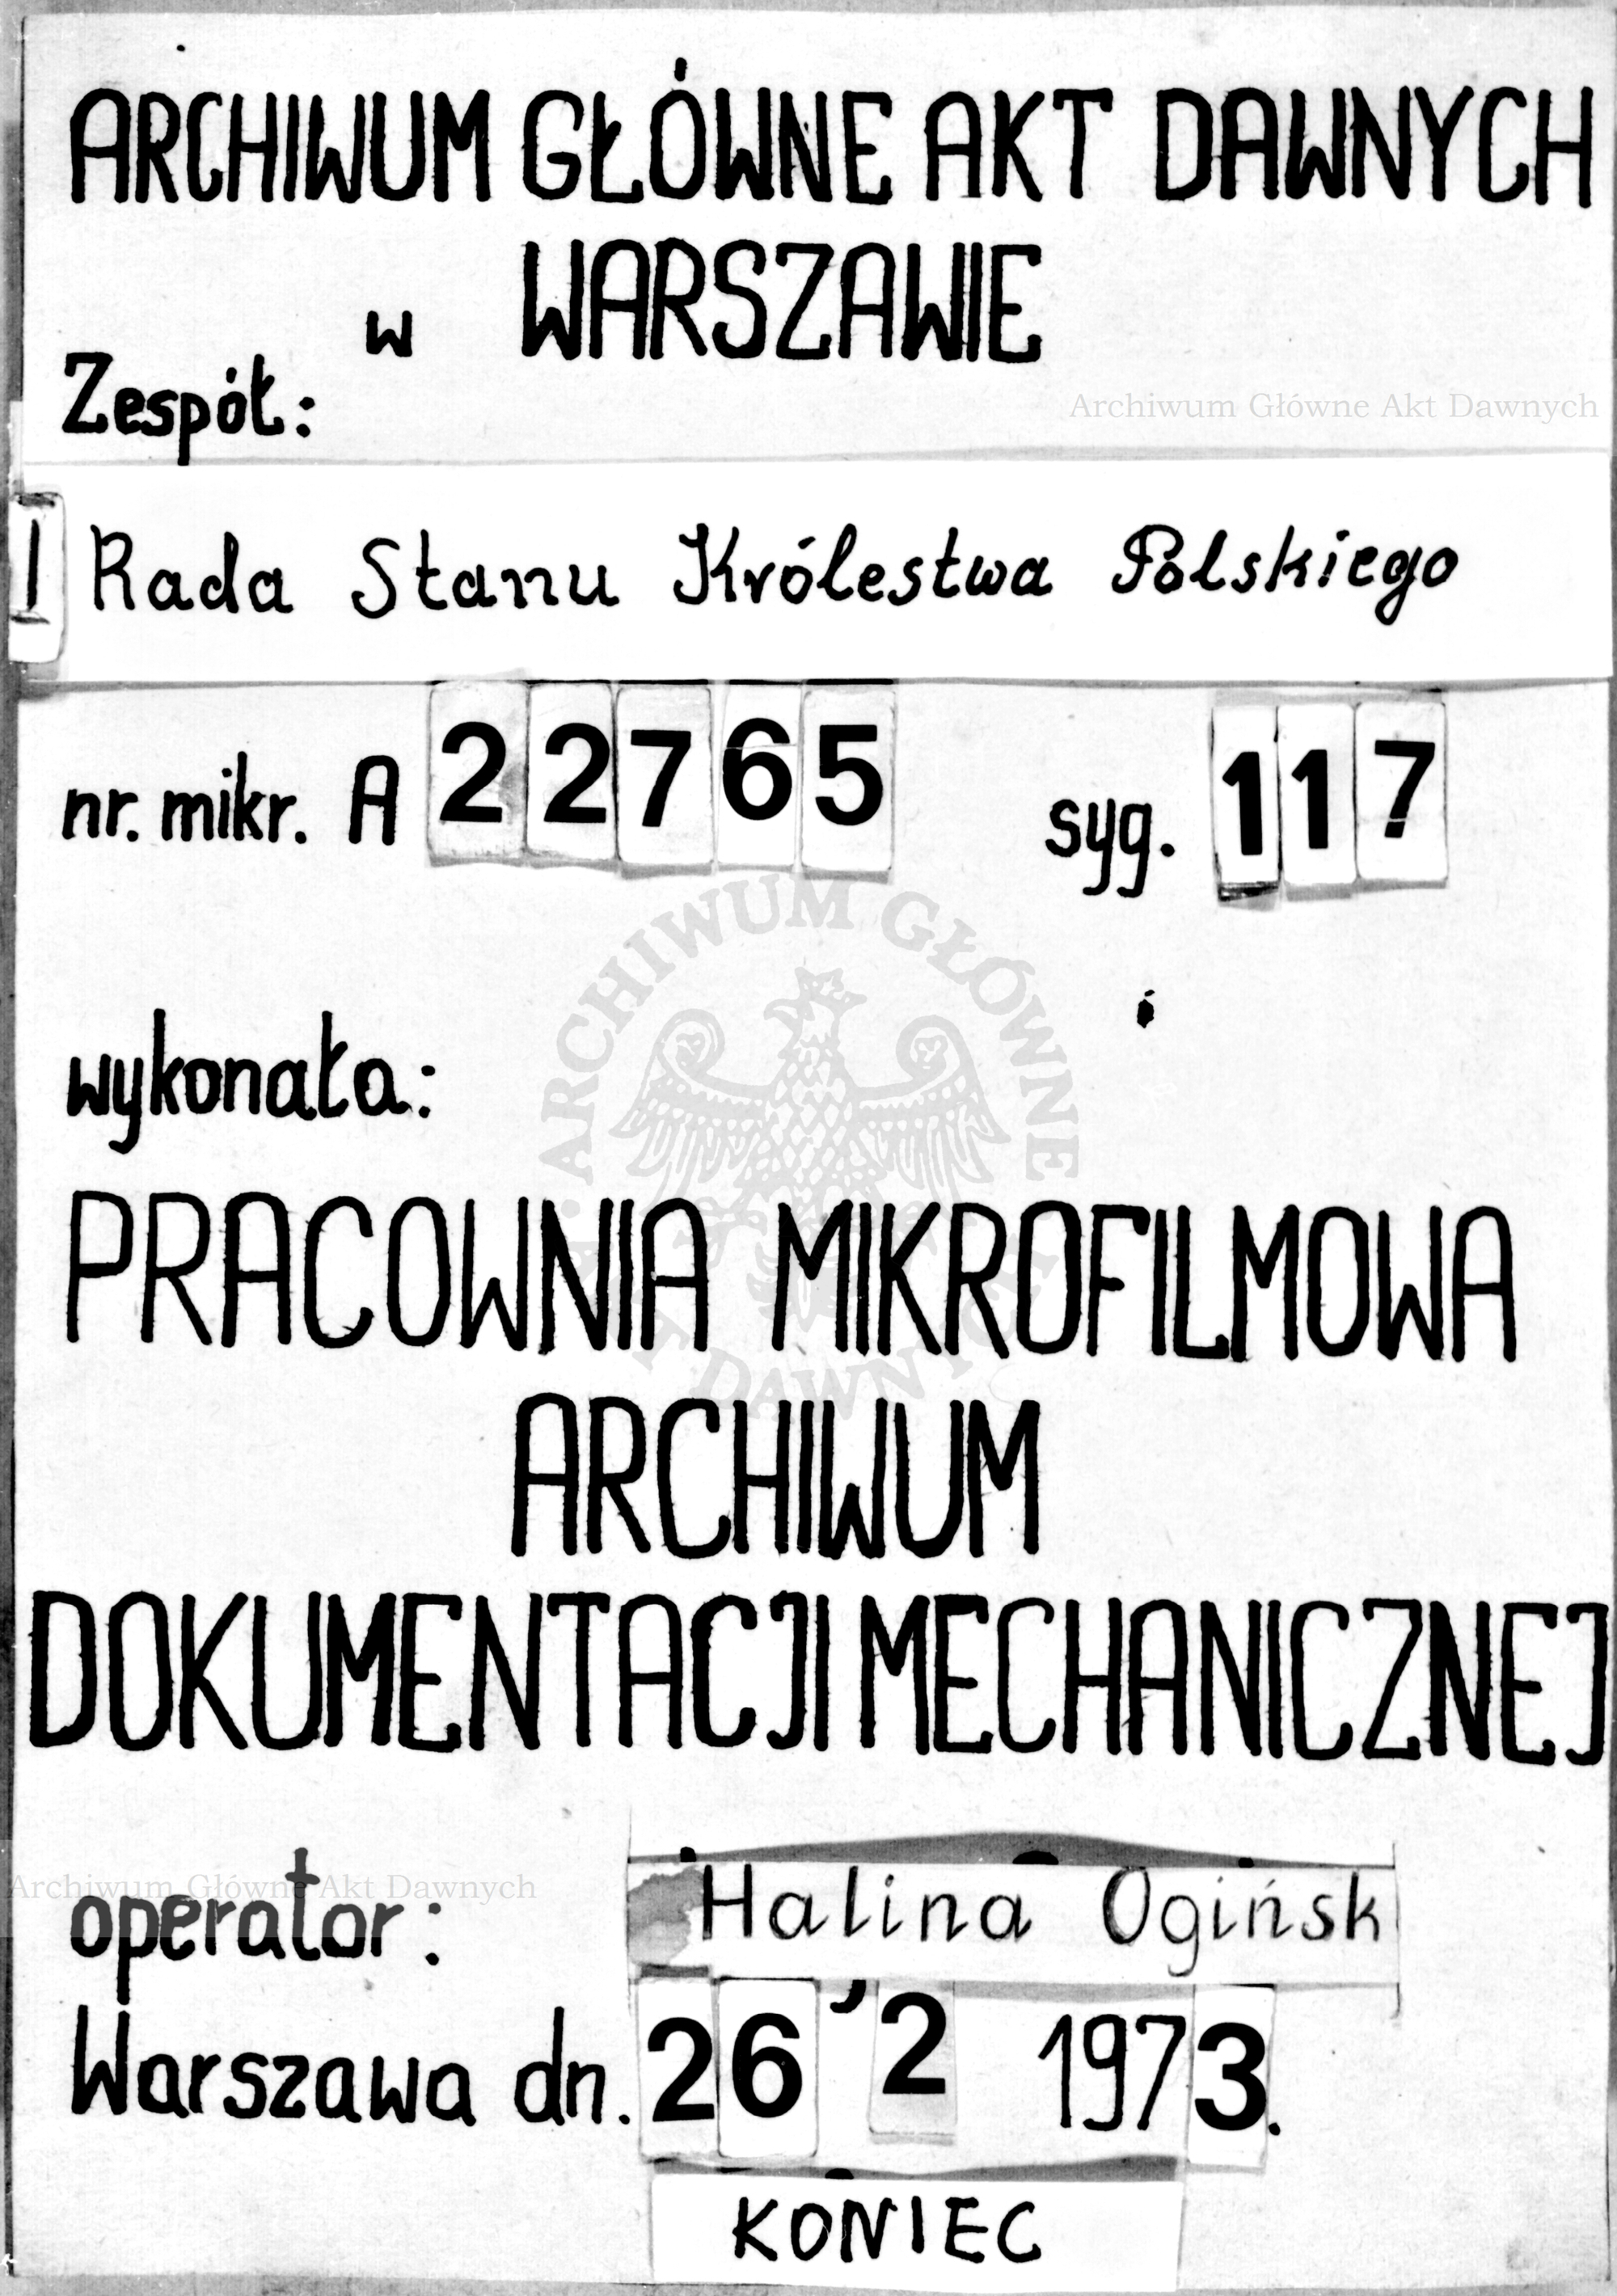 ARCHIWUM GŁÓWNE AKT DAWNYCH
w WARSZAWIE
Zespół:
Archiwum Główne Akt Dawnych
I Rada Stanu Królestwa Polskiego
nr. mikr. A 22765 syg. 117
ARCHIWUM GŁÓWNE AKT DAWNYCH
wykonała:
PRACOWNIA MIKROFILMOWA
ARCHIWUM
DOKUMENTACJI MECHANICZNEJ
Archiwum Główne Akt Dawnych
operator: Halina Ogińsk
Warszawa dn. 26 2 1973.
KONIEC